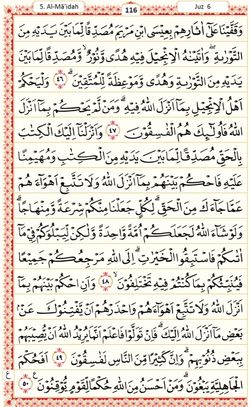 5. Al-Mā'idah 116 Juz 6
وَقَفَّيْنَا عَلٰٓى اٰثَارِهِمْ بِعِيْسَى ابْنِ مَرْيَمَ مُصَدِّقًا لِّمَا بَيْنَ يَدَيْهِ مِنَ
التَّوْرٰىةِ ۖ وَاٰتَيْنٰهُ الْاِنْجِيْلَ فِيْهِ هُدًى وَّنُوْرٌ ۙ وَّمُصَدِّقًا لِّمَا بَيْنَ
يَدَيْهِ مِنَ التَّوْرٰىةِ وَهُدًى وَّمَوْعِظَةً لِّلْمُتَّقِيْنَ ۗ ٤٦ وَلْيَحْكُمْ
اَهْلُ الْاِنْجِيْلِ بِمَآ اَنْزَلَ اللّٰهُ فِيْهِ ۗ وَمَنْ لَّمْ يَحْكُمْ بِمَآ اَنْزَلَ
اللّٰهُ فَاُولٰۤىِٕكَ هُمُ الْفٰسِقُوْنَ ٤٧ وَاَنْزَلْنَآ اِلَيْكَ الْكِتٰبَ
بِالْحَقِّ مُصَدِّقًا لِّمَا بَيْنَ يَدَيْهِ مِنَ الْكِتٰبِ وَمُهَيْمِنًا
عَلَيْهِ فَاحْكُمْ بَيْنَهُمْ بِمَآ اَنْزَلَ اللّٰهُ وَلَا تَتَّبِعْ اَهْوَاۤءَهُمْ
عَمَّا جَاۤءَكَ مِنَ الْحَقِّ ۗ لِكُلٍّ جَعَلْنَا مِنْكُمْ شِرْعَةً وَّمِنْهَاجًا ۗ
وَلَوْ شَاۤءَ اللّٰهُ لَجَعَلَكُمْ اُمَّةً وَّاحِدَةً وَّلٰكِنْ لِّيَبْلُوَكُمْ فِيْ مَآ
اٰتٰىكُمْ فَاسْتَبِقُوا الْخَيْرٰتِ ۗ اِلَى اللّٰهِ مَرْجِعُكُمْ جَمِيْعًا
فَيُنَبِّئُكُمْ بِمَا كُنْتُمْ فِيْهِ تَخْتَلِفُوْنَ ۙ ٤٨ وَاَنِ احْكُمْ بَيْنَهُمْ بِمَآ
اَنْزَلَ اللّٰهُ وَلَا تَتَّبِعْ اَهْوَاۤءَهُمْ وَاحْذَرْهُمْ اَنْ يَّفْتِنُوْكَ عَنْۢ
بَعْضِ مَآ اَنْزَلَ اللّٰهُ اِلَيْكَ ۗ فَاِنْ تَوَلَّوْا فَاعْلَمْ اَنَّمَا يُرِيْدُ اللّٰهُ اَنْ يُّصِيْبَهُمْ
بِبَعْضِ ذُنُوْبِهِمْ ۗ وَاِنَّ كَثِيْرًا مِّنَ النَّاسِ لَفٰسِقُوْنَ ٤٩ اَفَحُكْمَ
الْجَاهِلِيَّةِ يَبْغُوْنَ ۗ وَمَنْ اَحْسَنُ مِنَ اللّٰهِ حُكْمًا لِّقَوْمٍ يُّوْقِنُوْنَ ٥٠ ع